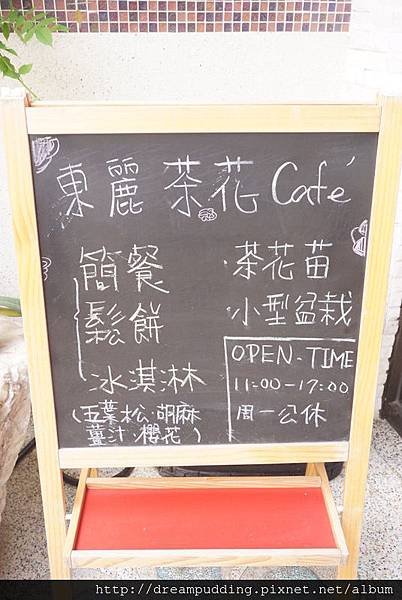 東麗茶花 Café
簡餐
鬆餅
冰淇淋
(五葉松.胡麻
薑汁.櫻花)
·茶花苗
·小型盆栽
OPEN-TIME
11:00-17:00
周一公休
http://dreampudding.pixnet.net/album